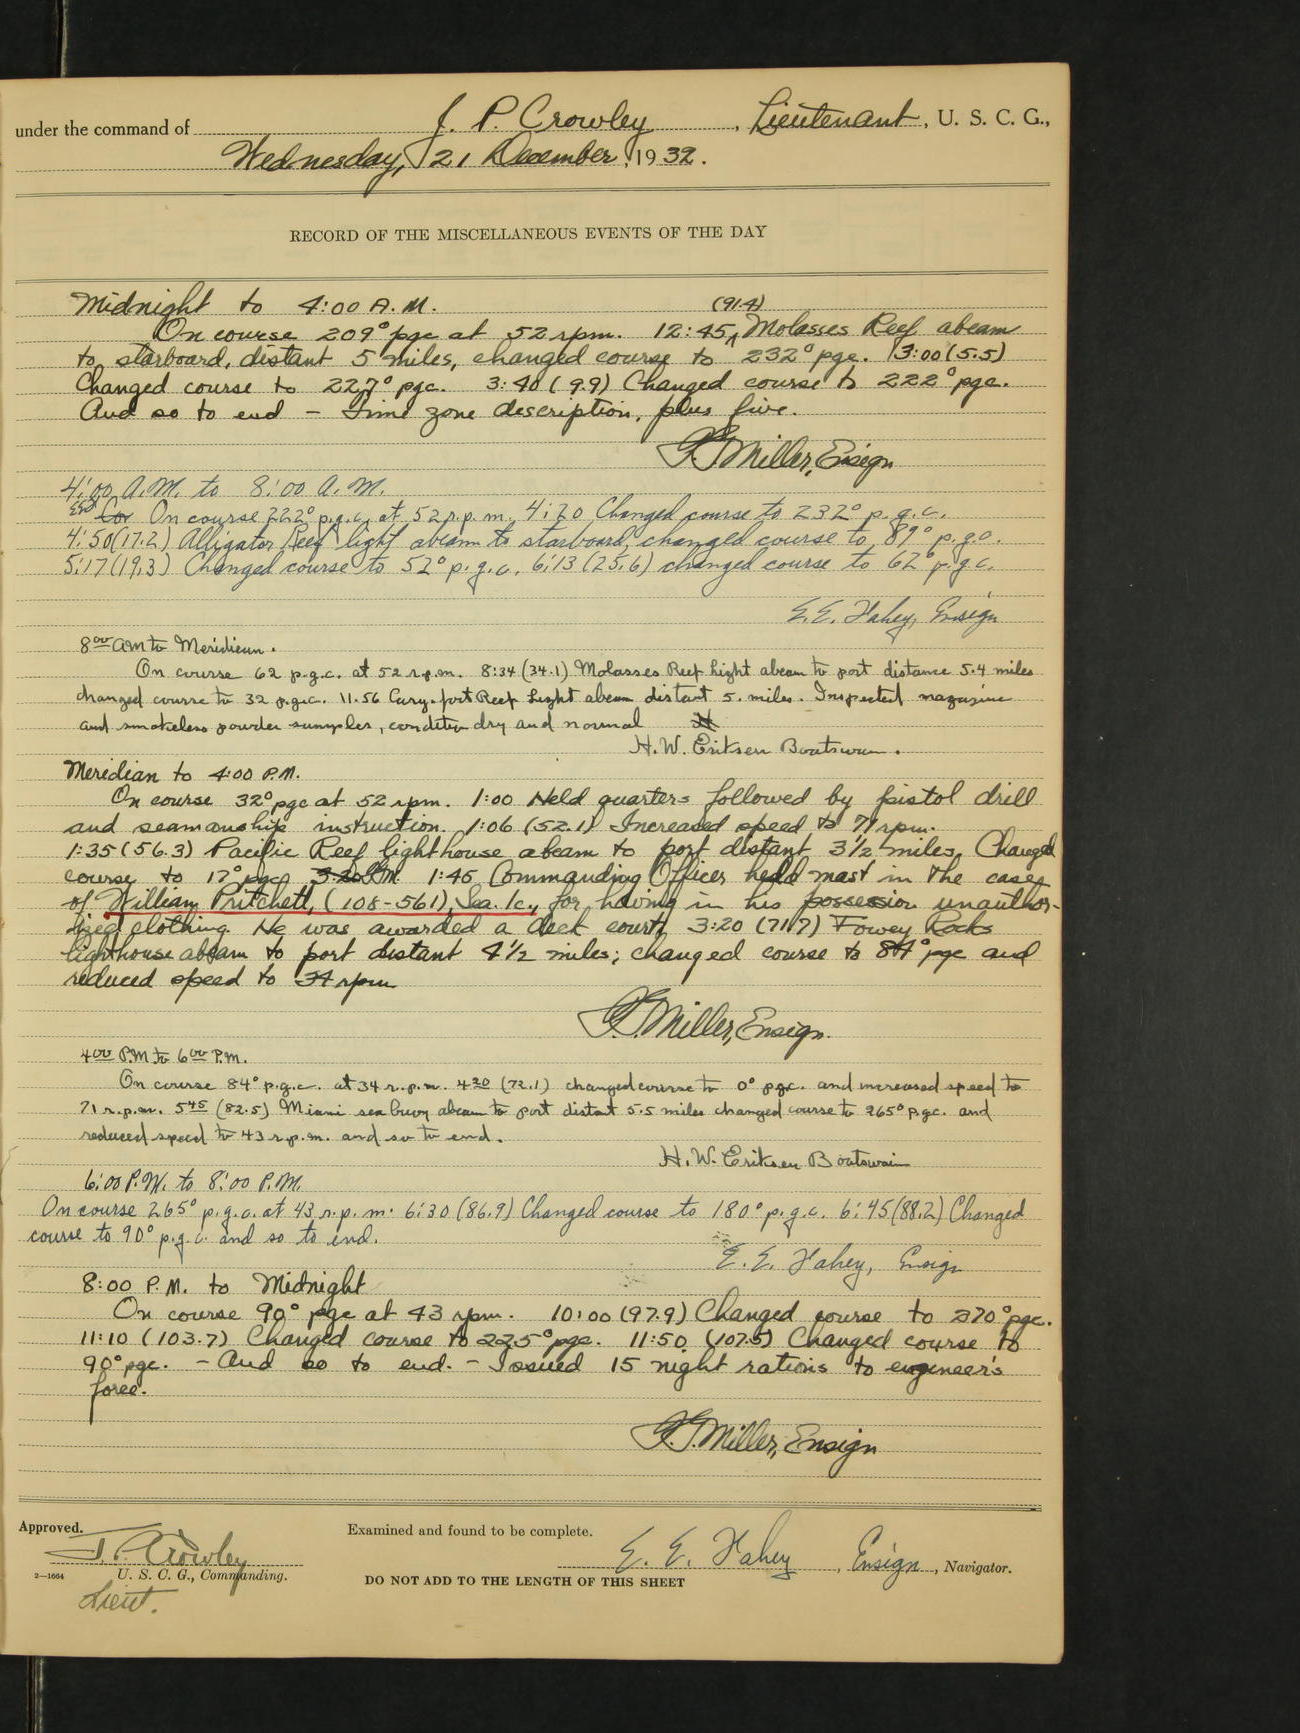 under the command of J. P. Crowley, Lieutenant, U. S. C. G.,
Wednesday, 21 December, 1932.
RECORD OF THE MISCELLANEOUS EVENTS OF THE DAY
Midnight to 4:00 A.M.
(91.4)
On course 209° pgc at 52 rpm. 12:45 ^ Molasses Reef abeam
to starboard, distant 5 miles, changed course to 232° pgc. 3:00 (5.5)
Changed course to 227° pgc. 3:40 (9.9) Changed course to 222° pgc.
And so to end - Time zone description, plus five.
Miller, Ensign
4:00 A.M. to 8:00 A.M.
On course 222° p.g.c. at 52 r.p.m. 4:20 Changed course to 232° p.g.c.
4:50 (17.2) Alligator Reef light abeam to starboard, changed course to 89° p.g.c.
5:17 (19.3) Changed course to 52° p.g.c. 6:13 (25.6) changed course to 62° p.g.c.
E. E. Fahey, Ensign
8 00 AM to Meridian.
On course 62 p.g.c. at 52 r.p.m. 8:34 (34.1) Molasses Reef Light abeam to port distance 5.4 miles
changed course to 32 p.g.c. 11.56 Carysfort Reef Light abeam distant 5. miles. Inspected magazine
and smokeless powder samples, condition dry and normal
H. W. Eriksen Boatswain.
Meridian to 4:00 P.M.
On course 32° pgc at 52 rpm. 1:00 Held quarters followed by pistol drill
and seamanship instruction. 1:06 (52.1) Increased speed to 71 rpm.
1:35 (56.3) Pacific Reef lighthouse abeam to port distant 3½ miles. Changed
course to 17° pgc 3:20 P.M. 1:45 Commanding Officer held mast in the case
of William Pritchett, (108-561), Sea. 1c., for having in his possession unauthor-
ized clothing. He was awarded a deck court. 3:20 (71.7) Fowey Rocks
lighthouse abeam to port distant 4½ miles; changed course to 84° pgc and
reduced speed to 34 rpm
Miller, Ensign.
4 00 P.M to 6 00 P.M.
On course 84° p.g.c. at 34 r.p.m. 4 20 (72.1) changed course to 0° pgc. and increased speed to
71 r.p.m. 5 45 (82.5) Miami sea buoy abeam to port distant 5.5 miles changed course to 265° p.g.c. and
reduced speed to 43 r.p.m. and so to end.
H. W. Eriksen Boatswain
6:00 P.M. to 8:00 P.M.
On course 265° p.g.c. at 43 r.p.m. 6:30 (86.9) Changed course to 180° p.g.c. 6:45 (88.2) Changed
course to 90° p.g.c. and so to end.
E. E. Fahey, Ensign
8:00 P.M. to Midnight
On course 90° pgc at 43 rpm. 10:00 (97.9) Changed course to 270° pgc.
11:10 (103.7) Changed course to 225° pgc. 11:50 (107.5) Changed course to
90° pgc. - And so to end. - Issued 15 night rations to engineer's
force.
Miller, Ensign
Approved.
Examined and found to be complete.
J. P. Crowley
E. E. Fahey, Ensign, Navigator.
2—1664 U. S. C. G., Commanding.
DO NOT ADD TO THE LENGTH OF THIS SHEET
Lieut.